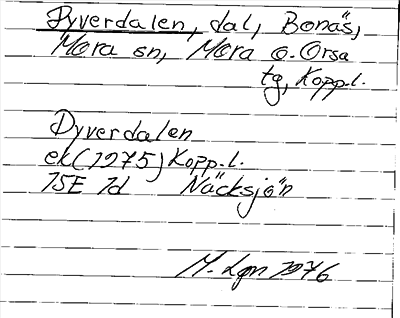 Dyverdalen, dal, Bonäs,
Mora sn, Mora o. Orsa
tg, Kopp.l.
Dyverdalen
ek(1975) Kopp.l.
15E 1d Näcksjön
M. Lgn 1976